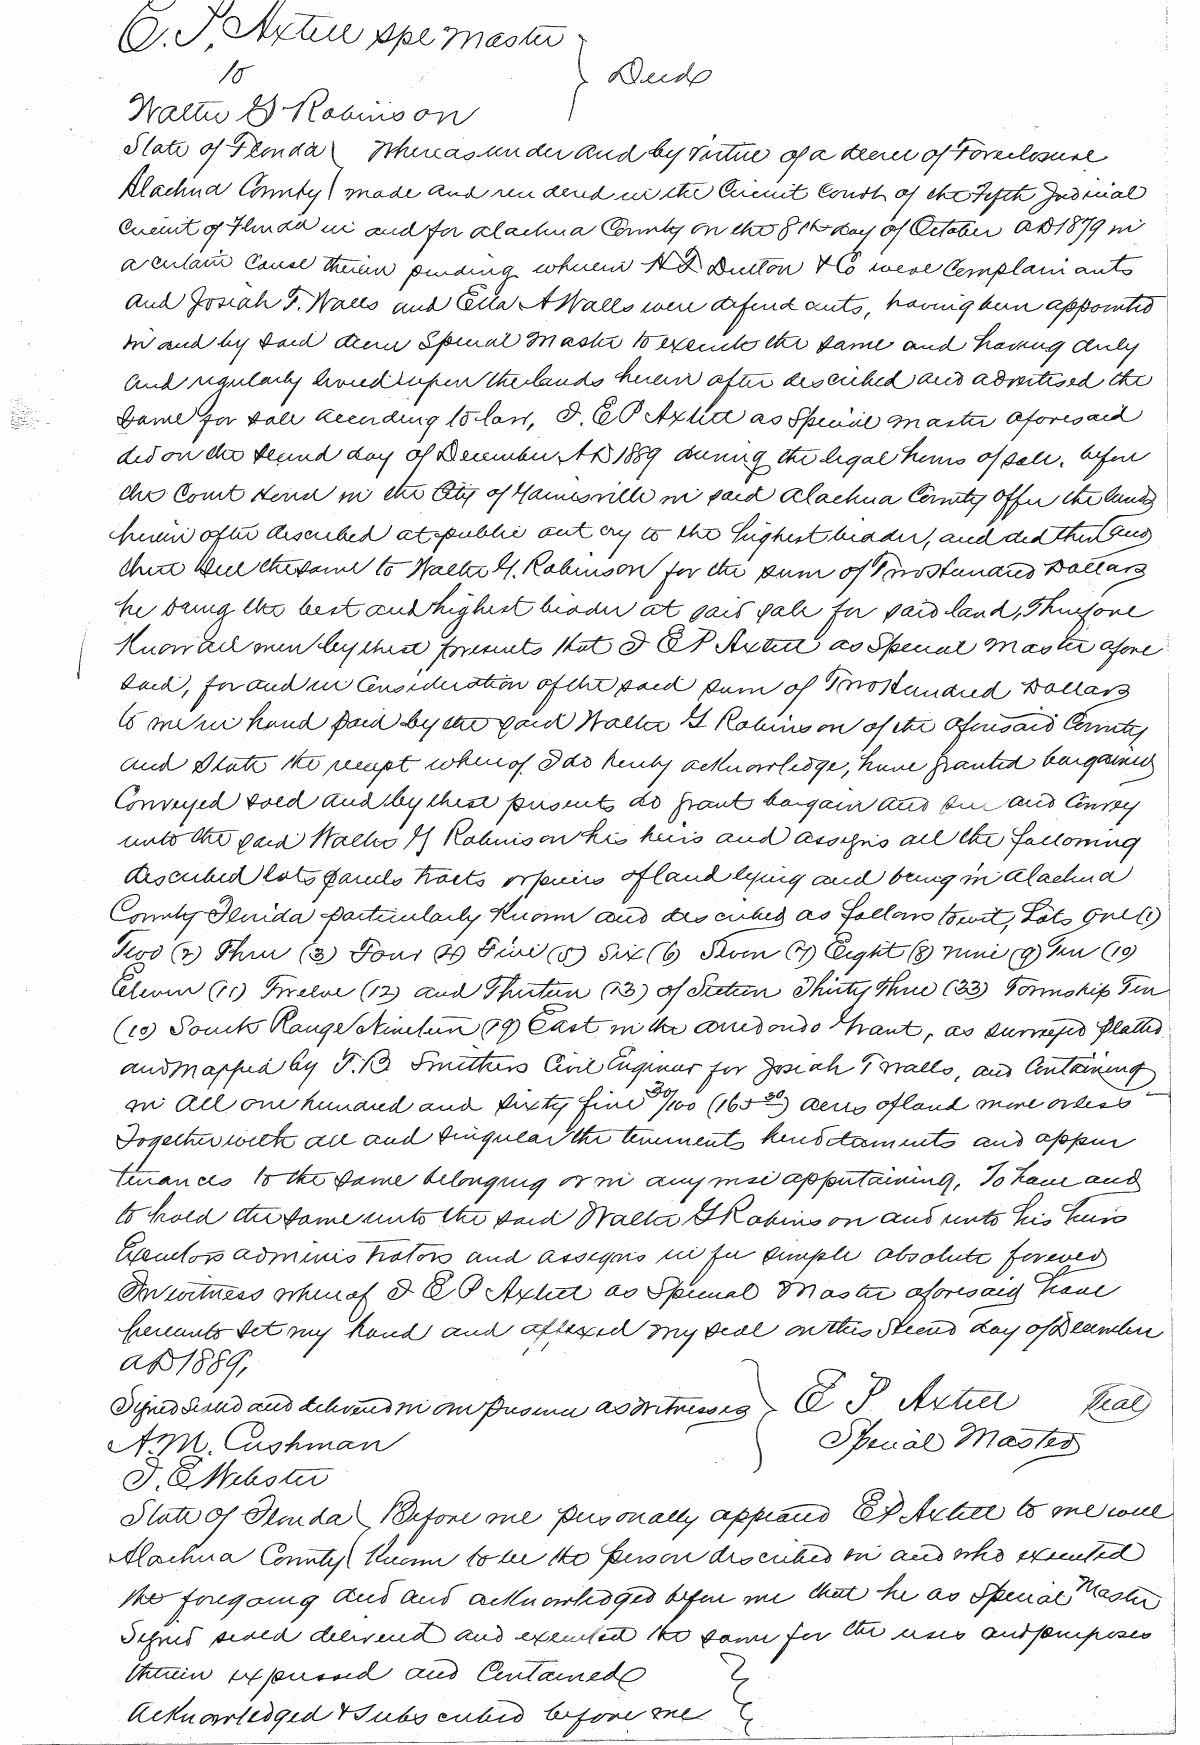 E. P. Axtell spe Master
to } Deed
Walter G Robinson
State of Florida ( Whereas under and by virtue of a decree of Foreclosure
Alachua County ( made and rendered in the Circuit Court of the Fifth Judicial
Circuit of Florida in and for Alachua County on the 8th day of October AD 1879 in
a certain cause therein pending wherein H F Dutton & Co were Complainants
and Josiah T. Walls and Ella A Walls were defendants, having been appointed
in and by said decree Special Master to execute the same and having duly
and regularly levied upon the lands herein after described and advertised the
same for sale according to law, I. E P Axtell as Special Master aforesaid
did on the second day of December AD 1889 during the legal hours of sale, before
the Court House in the City of Gainesville in said Alachua County offer the lands
herein after described at public out cry to the highest bidder, and did then and
there sell the same to Walter G. Robinson for the sum of Two Hundred Dollars
he being the best and highest bidder at said sale for said land, Therefore
Know all men by these presents that I E P Axtell as Special Master afore
said, for and in Consideration of the said sum of Two Hundred Dollars
to me in hand paid by the said Walter G Robinson of the aforesaid County
and State the receipt whereof I do hereby acknowledge, have granted bargained
Conveyed sold and by these presents do grant bargain and sell and Convey
unto the said Walter G Robinson his heirs and assigns all the following
described lots parcels tracts or pieces of land lying and being in Alachua
County Florida particularly Known and described as follows to wit, Lots One (1)
Two (2) Three (3) Four (4) Five (5) Six (6) Seven (7) Eight (8) Nine (9) Ten (10)
Eleven (11) Twelve (12) and Thirteen (13) of Section Thirty Three (33) Township Ten
(10) South Range Nineteen (19) East in the arredondo Grant, as surveyed platted
and mapped by T. B. Smithers Civil Engineer for Josiah T Walls, and Containing
in all one hundred and sixty five 30/100 (165 30) acres of land more or less
Together with all and singular the tenements hereditaments and appur
tenances to the same belonging or in any wise appertaining, To have and
to hold the same unto the said Walter G Robinson and unto his heirs
Executors administrators and assigns in fee simple absolute forever
In witness whereof I E P Axtell as Special Master aforesaid have
hereunto set my hand and affixed my seal on this Second day of December
AD 1889,
Signed sealed and delivered in our presence as witnesses } E P Axtell Seal
A. M. Cushman Special Master
J. E Webster
State of Florida ( Before me personally appeared E P Axtell to me well
Alachua County ( Known to be the person described in and who executed
the foregoing deed and acknowledged before me that he as Special Master
Signed sealed delivered and executed the same for the uses and purposes
therein expressed and Contained
Acknowledged & Subscribed before me